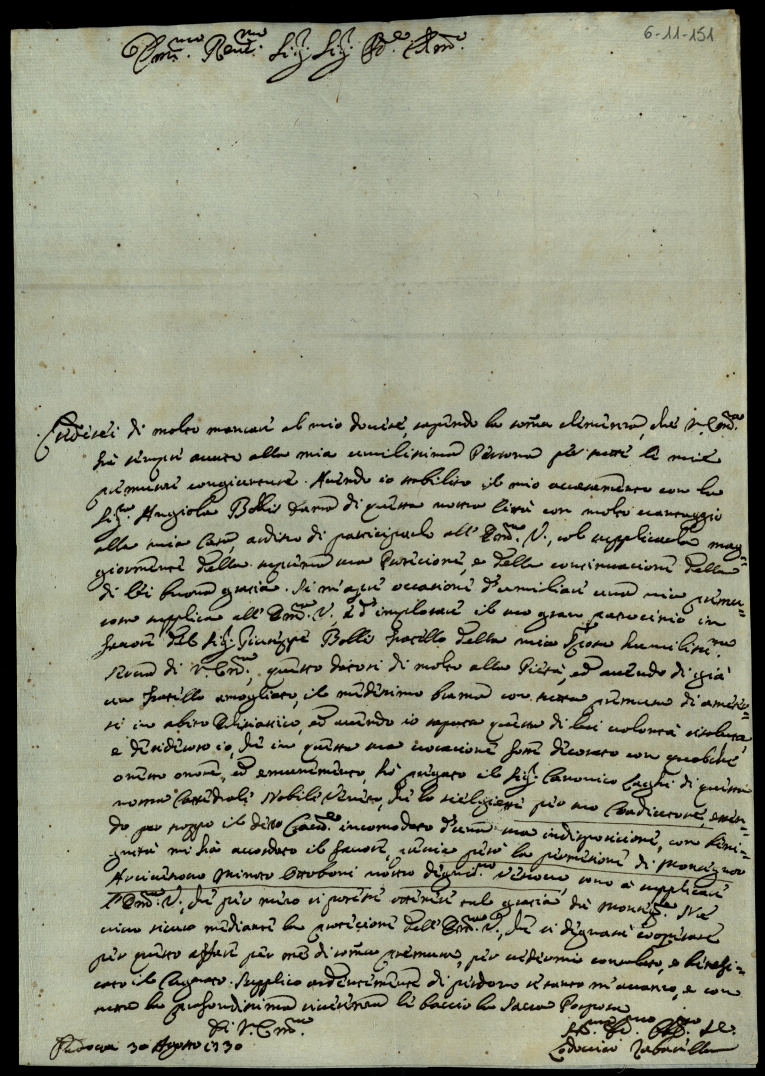 6-11-151
Em.mo Rev.mo Sig.r Sig.r P.ne Col.mo
Crederei di molto mancare al mio dovere, sapendo la somma clemenza, che V. Em.a
hà sempre avuto alla mia umilissima Persona per tutte le mie
premurose congiunture. Avendo io stabilito il mio accasamento con la
Sig.ra Angiola Bolis Dama di questa nostra Città con molto vantaggio
alla mia Casa, ardisco di parteciparlo all' Em.za V., col supplicarla mag=
giormente della suprema sua Protezione, e della continuazione della
di lei buona grazia. Si m'apre occasione d'umiliare una mia premu=
rosa supplica all' Em.za V., e d'implorare il suo gran patrocinio in
favore del Sig.r Giuseppe Bolis fratello della mia Sposa humiliss.ma
Serva di V. Em.za, questo dotosi di molto alla Pietà, ed avendo di già
un fratello amogliato, il medesimo brama con tutta premura di metter=
si in abito Ecclesiastico, ed avendo io saputa questa di lui volontà risoluta,
e desideroso io, che in questa sua vocazione fosse decorato con qualche
onesto onore, ed emolumento, hò pregato il Sig.r Canonico Laghi di questa
nostra Cattedrale Nobile Veneto, che lo scielgiesse per suo Coadiutore, essen=
do pur troppo il detto Can.co incomodato d'una sua indisposizione, con beni=
gnità mi hà accordato il favore, senza però la permissione di Monsignor
Arcivescovo Minoto Ottoboni nostro degniss.mo Vescovo sono a supplicare
l' Em.za V., che per mezo si potesse ottenere tale grazia da Mons.r Ma
vivo sicuro mediante la protezione dell' Em.za V., che si degnarà cooperare
per questo affare per me di somma premura, per vedermi consolato, e benefi=
cato il Cognato. Supplico ardentemente di perdono se tanto m'avanzo, e con
tutta la profondissima riverenza le baccio la Sacra Porpora
Di V. Em.za
Padova 30 Agosto 1730
Hum.mo Div.mo Obb.mo Se.
Lodovico Zabarella